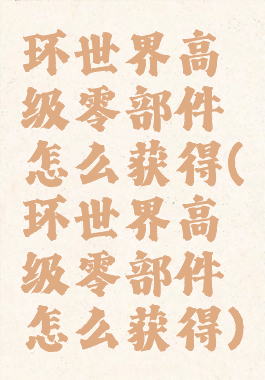 环世界高
级零部件
怎么获得(
环世界高
级零部件
怎么获得)